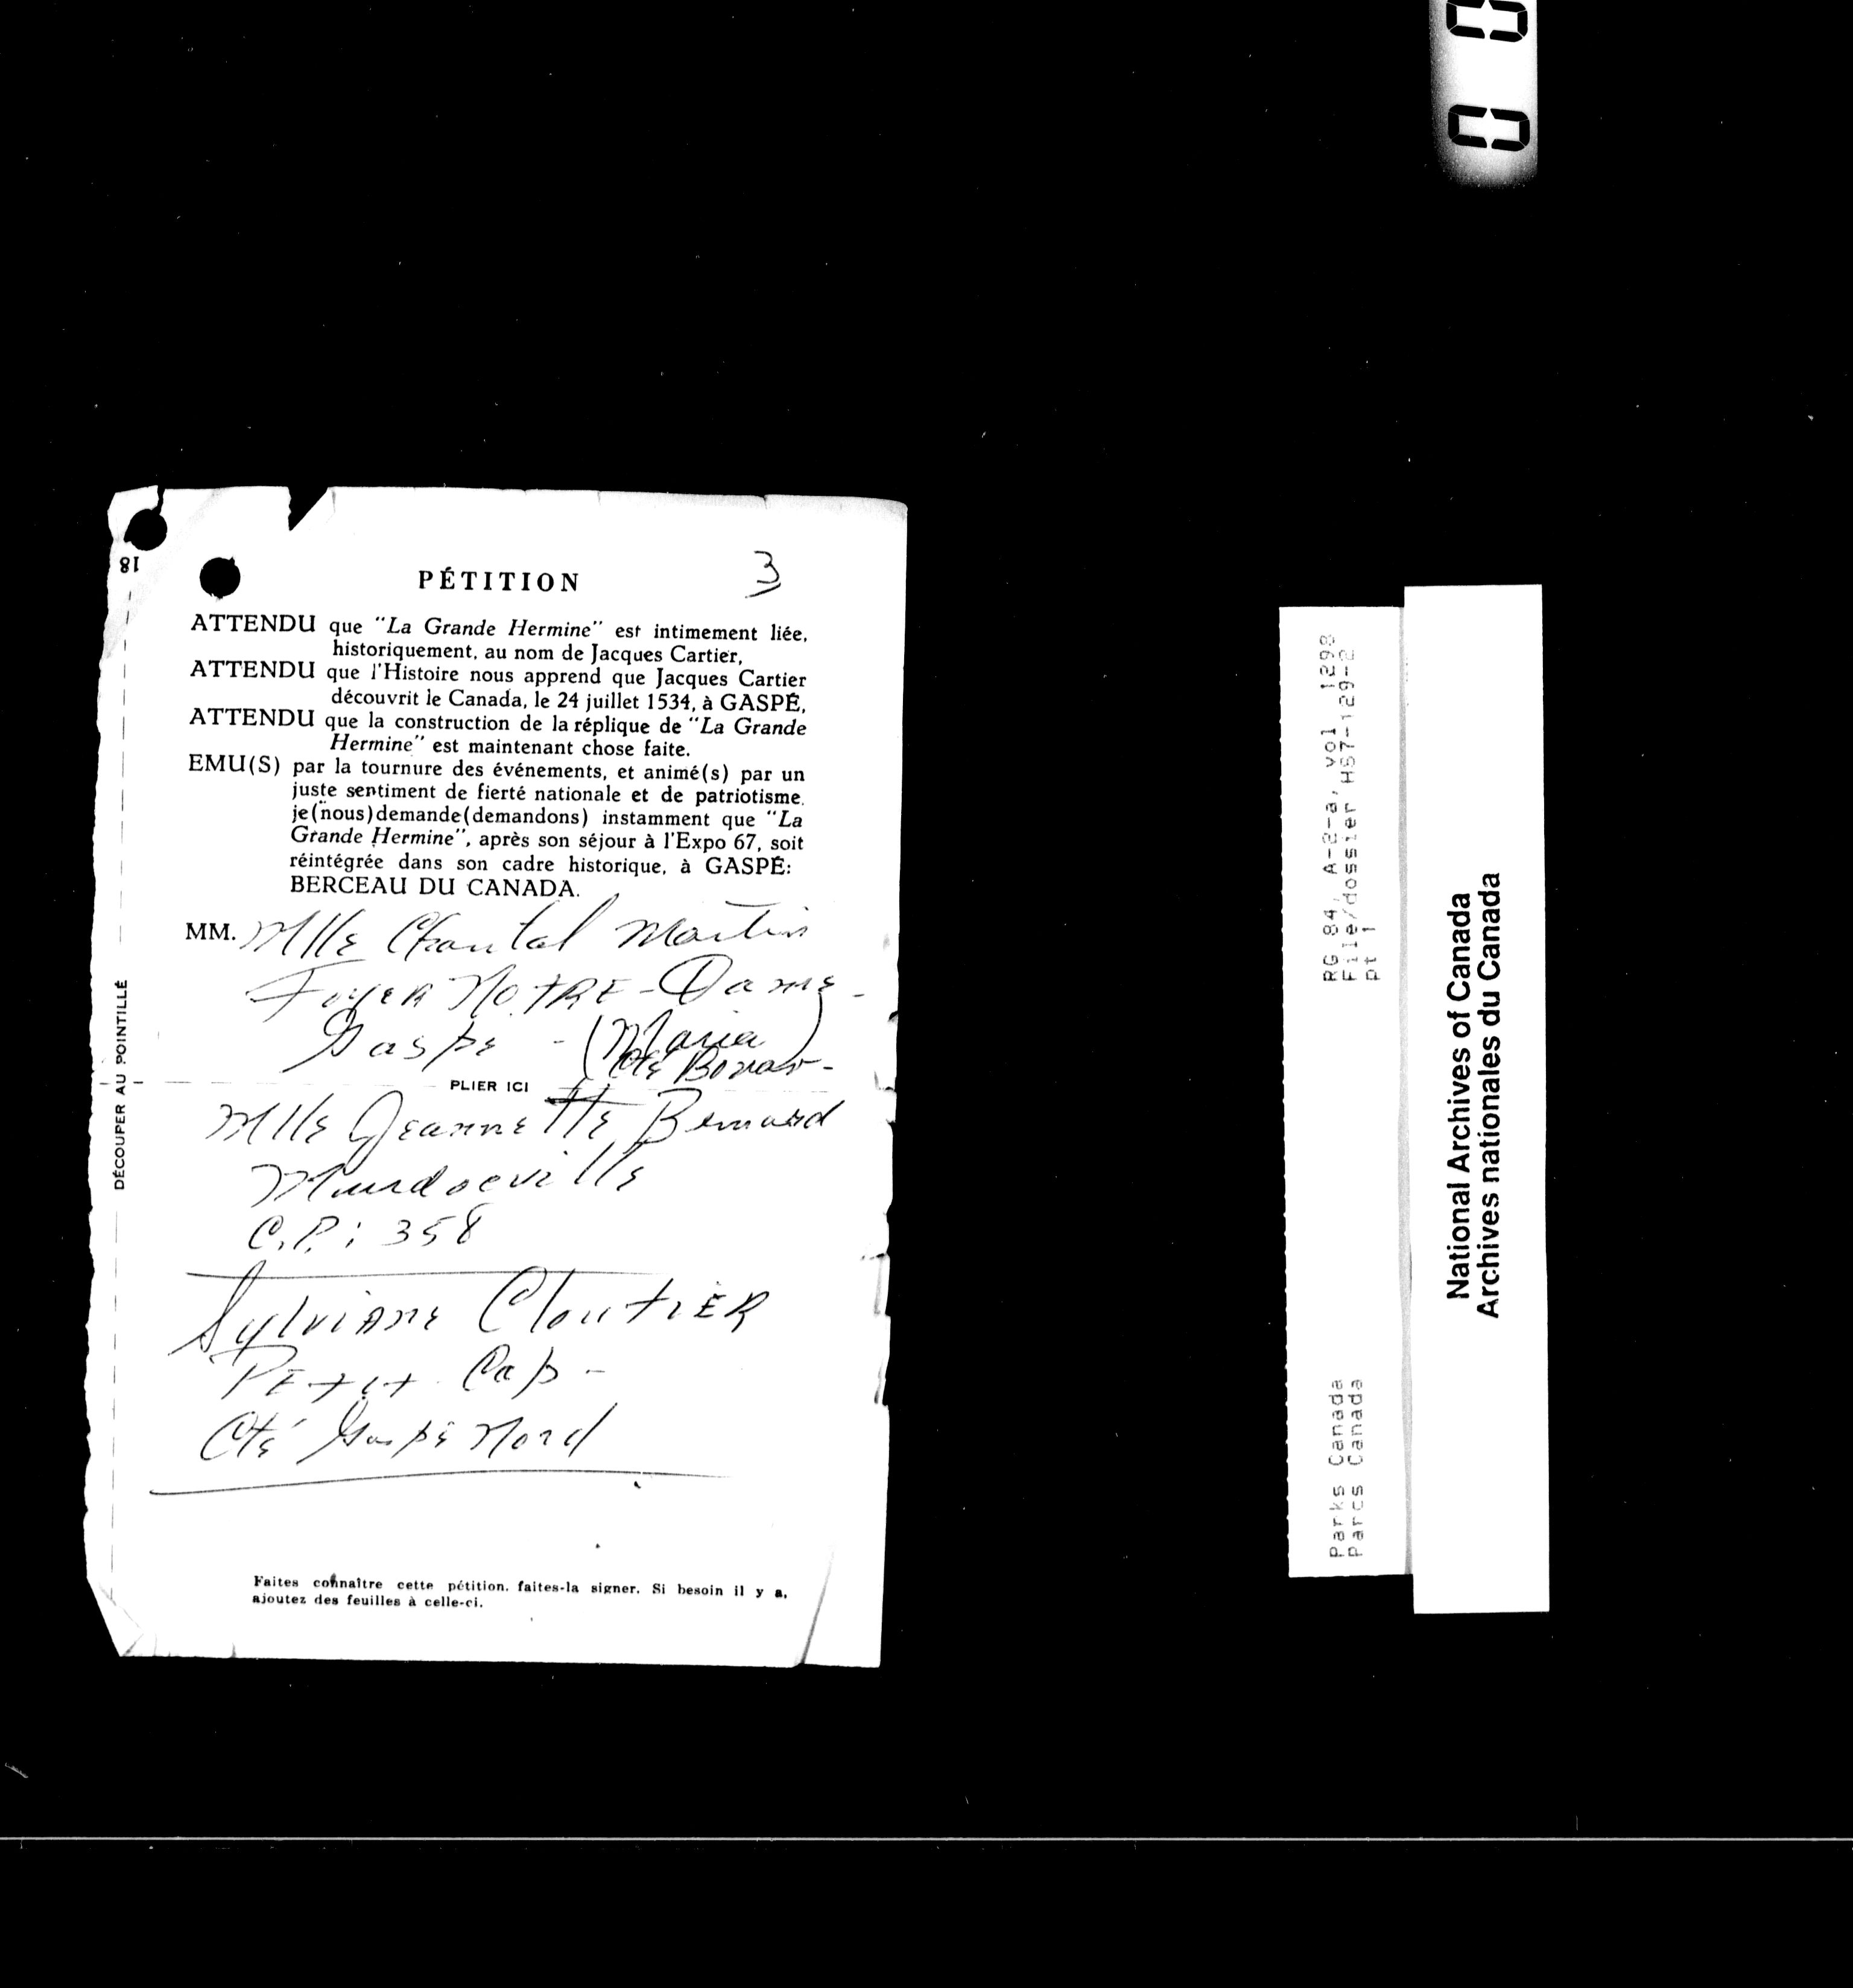 18
PÉTITION
3
ATTENDU que "La Grande Hermine" est intimement liée,
historiquement, au nom de Jacques Cartier,
ATTENDU que l'Histoire nous apprend que Jacques Cartier
découvrit le Canada, le 24 juillet 1534, à GASPÉ,
ATTENDU que la construction de la réplique de "La Grande
Hermine" est maintenant chose faite.
EMU(S) par la tournure des événements, et animé(s) par un
juste sentiment de fierté nationale et de patriotisme.
je(nous)demande(demandons) instamment que "La
Grande Hermine", après son séjour à l'Expo 67, soit
réintégrée dans son cadre historique, à GASPÉ:
BERCEAU DU CANADA.
MM. Mlle Chantal Martin
Foyer NOTRE-Dame-
Gaspé - (Maria)
Cté Bonav-
PLIER ICI
Mlle Jeannette Bernard
Murdocville
C.P.: 358
Sylviane Cloutier
Petit Cap -
Cté Gaspé Nord
Faites connaître cette pétition. faites-la signer. Si besoin il y a,
ajoutez des feuilles à celle-ci.
DÉCOUPER AU POINTILLÉ
RG 84, A-2-a, vol 1298
File/dossier HS7-129-2
pt 1
Parks Canada
Parcs Canada
National Archives of Canada
Archives nationales du Canada
0 0